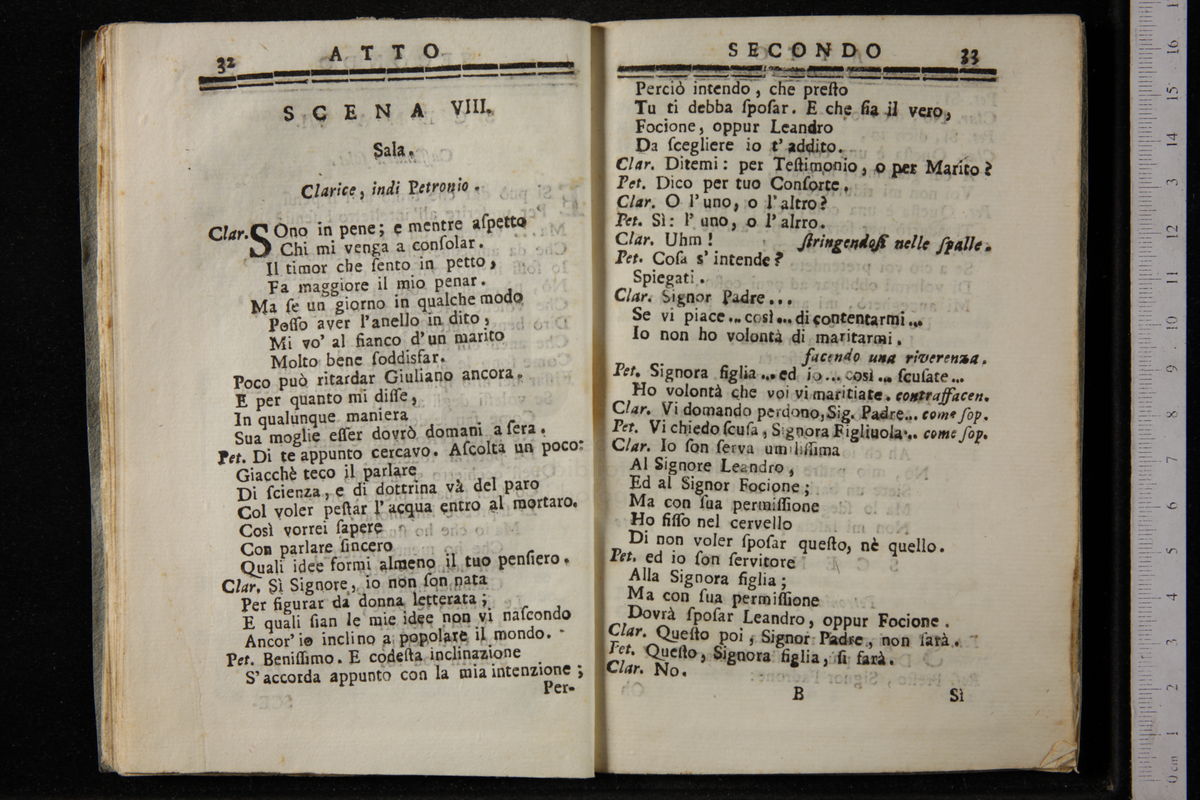 32 ATTO
SCENA VIII.
Sala.
Clarice, indi Petronio.
Clar. SOno in pene; e mentre aſpetto
Chi mi venga a conſolar.
Il timor che ſento in petto,
Fa maggiore il mio penar.
Ma ſe un giorno in qualche modo
Poſſo aver l'anello in dito,
Mi vo' al fianco d'un marito
Molto bene ſoddisfar.
Poco può ritardar Giuliano ancora.
E per quanto mi diſſe,
In qualunque maniera
Sua moglie eſſer dovrò domani a ſera.
Pet. Di te appunto cercavo. Aſcolta un poco:
Giacchè teco il parlare
Di ſcienza, e di dottrina và del paro
Col voler peſtar l'acqua entro al mortaro.
Così vorrei ſapere
Con parlare ſincero
Quali idee formi almeno il tuo penſiero.
Clar. Sì Signore, io non ſon nata
Per figurar da donna letterata;
E quali ſian le mie idee non vi naſcondo
Ancor' io inclino a popolare il mondo.
Pet. Beniſſimo. E codeſta inclinazione
S'accorda appunto con la mia intenzione;
Per-
SECONDO 33
Perciò intendo, che preſto
Tu ti debba ſpoſar. E che ſia il vero,
Focione, oppur Leandro
Da ſcegliere io t'addito.
Clar. Ditemi: per Teſtimonio, o per Marito?
Pet. Dico per tuo Conſorte.
Clar. O l'uno, o l'altro?
Pet. Sì: l' uno, o l' alrro.
Clar. Uhm! ſtringendoſi nelle ſpalle.
Pet. Coſa s'intende?
Spiegati.
Clar. Signor Padre...
Se vi piace... così... di contentarmi...
Io non ho volontà di maritarmi.
facendo una riverenza.
Pet. Signora figlia... ed io... così... ſcuſate...
Ho volontà che voi vi maritiate. contraffacen.
Clar. Vi domando perdono, Sig. Padre... come ſop.
Pet. Vi chiedo ſcuſa, Signora Figliuola... come ſop.
Clar. Io ſon ſerva umiliſſima
Al Signore Leandro,
Ed al Signor Focione;
Ma con ſua permiſſione
Ho fiſſo nel cervello
Di non voler ſpoſar queſto, nè quello.
Pet. ed io ſon ſervitore
Alla Signora figlia;
Ma con ſua permiſſione
Dovrà ſpoſar Leandro, oppur Focione.
Clar. Queſto poi, Signor Padre, non ſarà.
Pet. Queſto, Signora figlia, ſi farà.
Clar. No.
B Sì